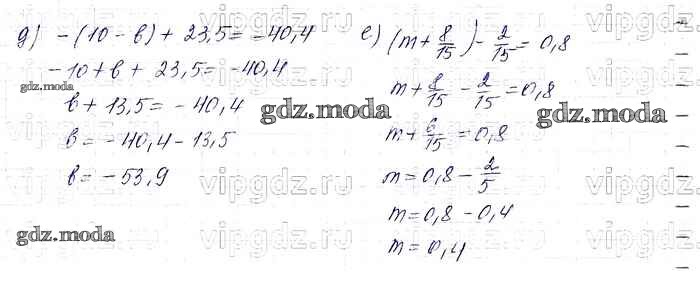 д) -(10 - в) + 23,5 = -40,4
-10 + в + 23,5 = -40,4
в + 13,5 = -40,4
в = -40,4 - 13,5
в = -53,9
е) (m + 8/15) - 2/15 = 0,8
m + 8/15 - 2/15 = 0,8
m + 6/15 = 0,8
m = 0,8 - 2/5
m = 0,8 - 0,4
m = 0,4
gdz.moda
gdz.moda
gdz.moda
gdz.moda
vipgdz.ru
vipgdz.ru
vipgdz.ru
vipgdz.ru
vipgdz.ru
vipgdz.ru
vipgdz.ru
vipgdz.ru